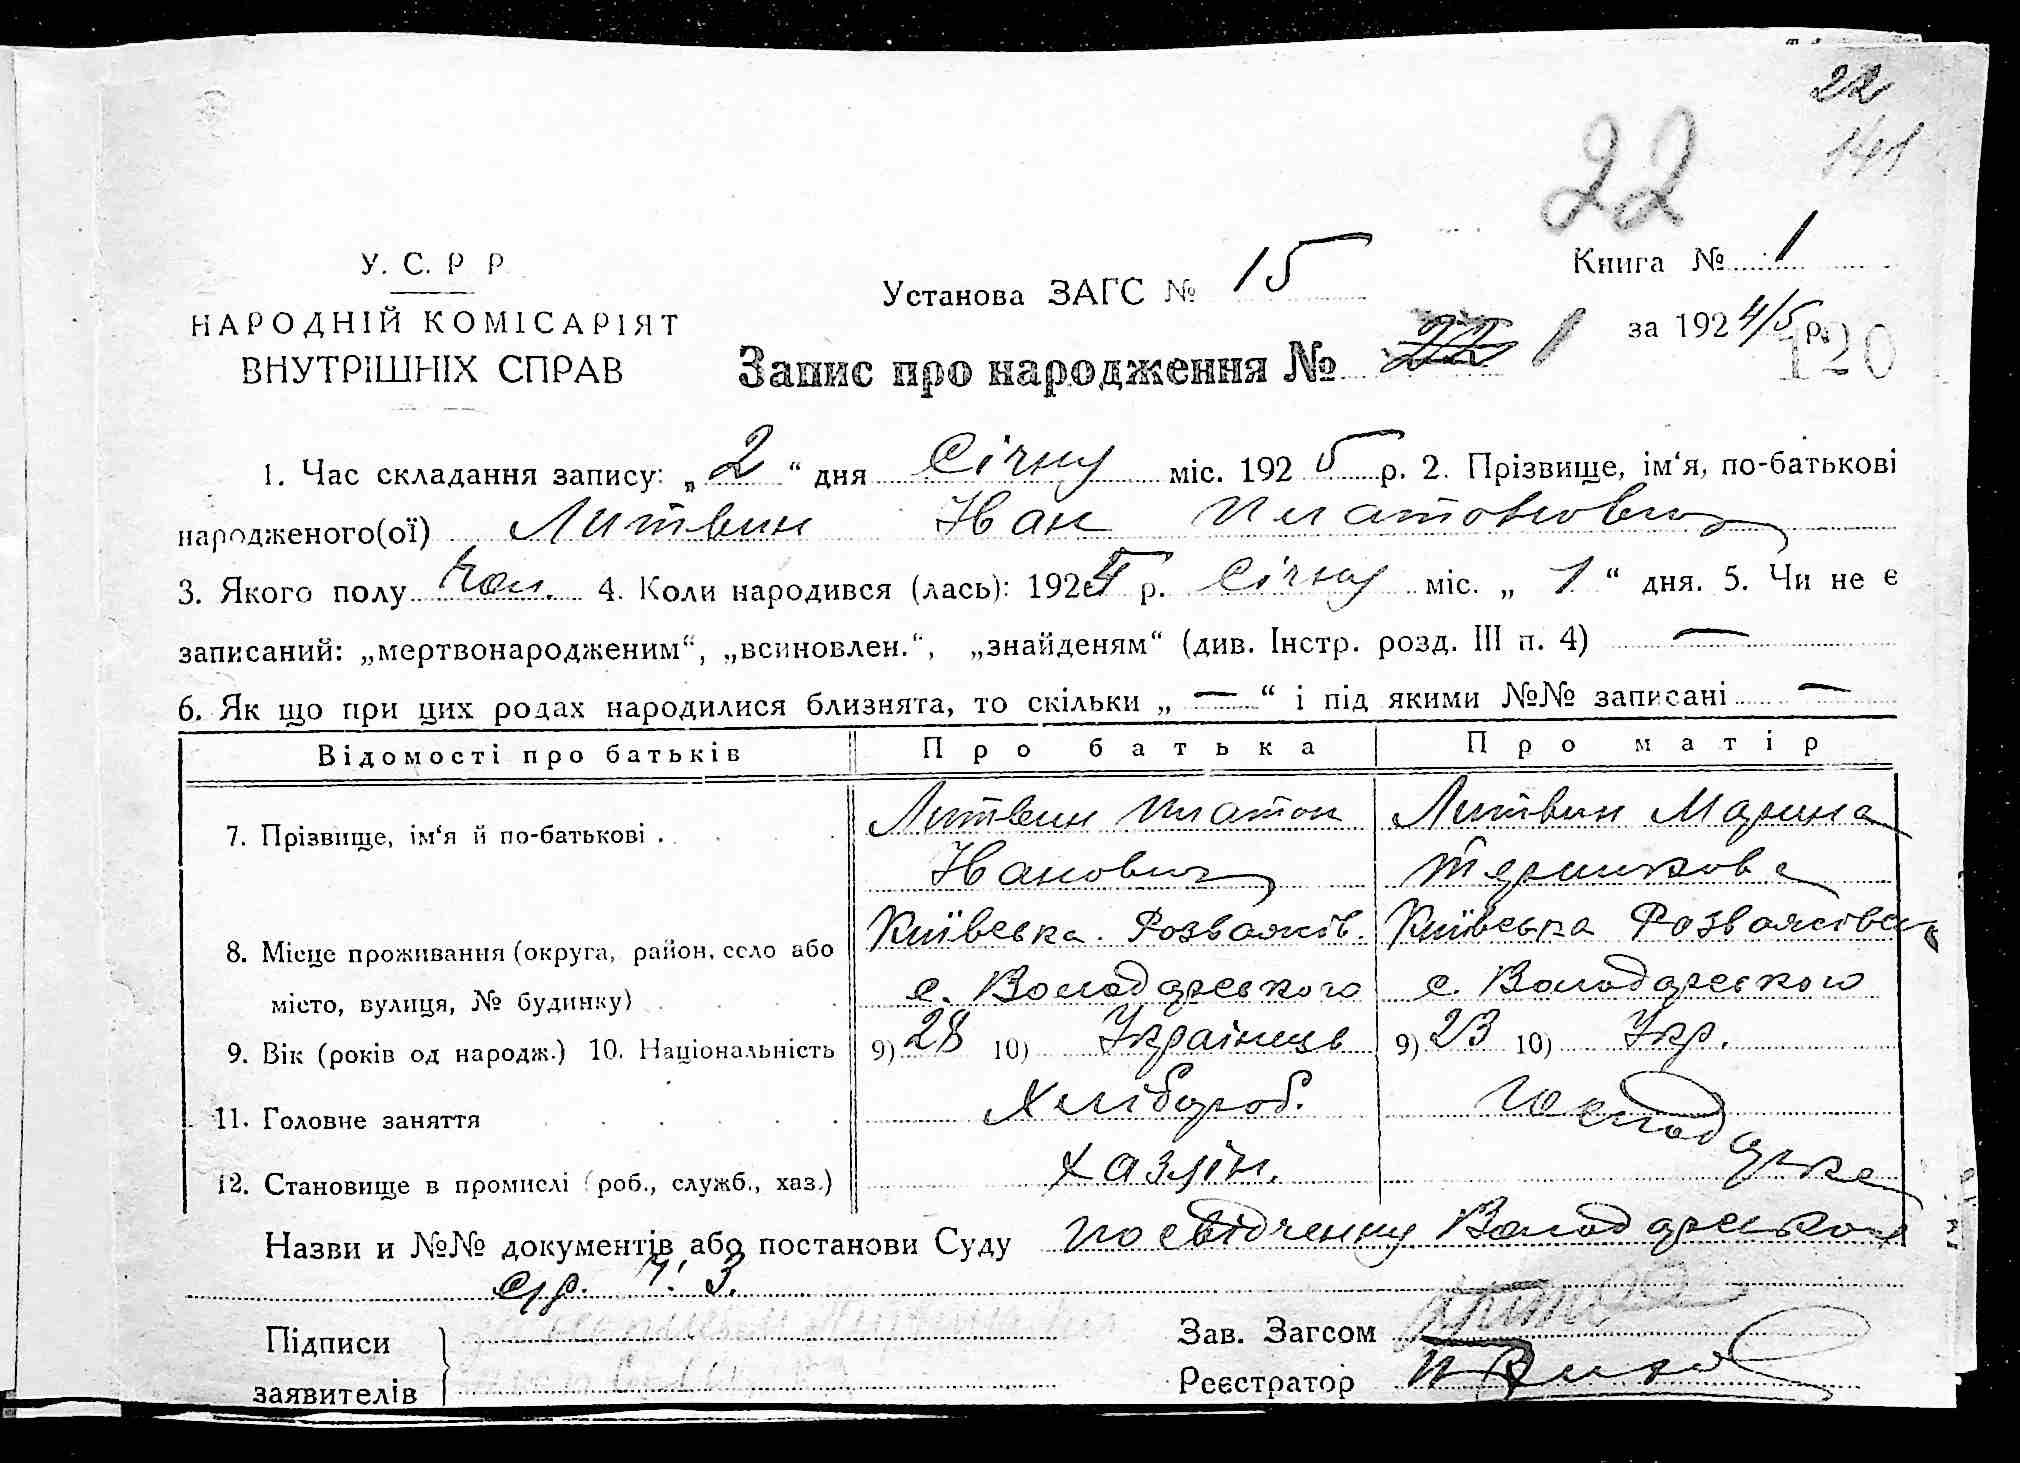 22
141
22
У. С. Р Р
НАРОДНІЙ КОМІСАРІЯТ
ВНУТРІШНІХ СПРАВ
Установа ЗАГС № 15
Книга № 1
за 1924/5 р.
120
Запис про народження № 22 1
1. Час складання запису: „2“ дня Січня міс. 1925 р. 2. Прізвище, ім‘я, по-батькові
народженого(ої) Литвин Іван Платонович
3. Якого полу Чол. 4. Коли народився (лась): 1925 р. Січня міс. „1“ дня. 5. Чи не є
записаний: „мертвонародженим“, „всиновлен.“, „знайденям“ (див. Інстр. розд. III п. 4) —
6. Як що при цих родах народилися близнята, то скільки „—“ і під якими №№ записані —
Відомості про батьків Про батька Про матір
7. Прізвище, ім‘я й по-батькові . Литвин Платон Литвин Марина
Іванович
8. Місце проживання (округа, район, село або Київська. Розважів. Київська Розважівськ
місто, вулиця, № будинку) с. Володарського с. Володарського
9. Вік (років од народж.) 10. Національність 9) 28 10) Українець 9) 23 10) Укр.
11. Головне заняття Хлібороб. Господарка
12. Становище в промислі (роб., служб., хаз.) Хазяїн.
Назви и №№ документів або постанови Суду посвідчення Володарської
с/р. ч. 3.
Підписи
заявителів
Зав. Загсом
Реєстратор